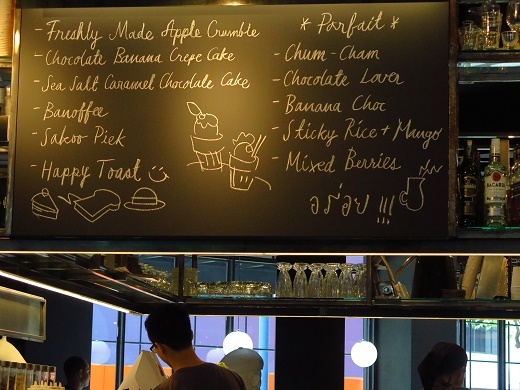 - Freshly Made Apple Crumble
- Chocolate Banana Crepe Cake
- Sea Salt Caramel Chocolate Cake
- Banoffee
- Sakoo Piek
- Happy Toast
* Parfait *
- Chum-Cham
- Chocolate Lover
- Banana Choc
- Sticky Rice + Mango
- Mixed Berries
อร่อย !!!
BACARDI